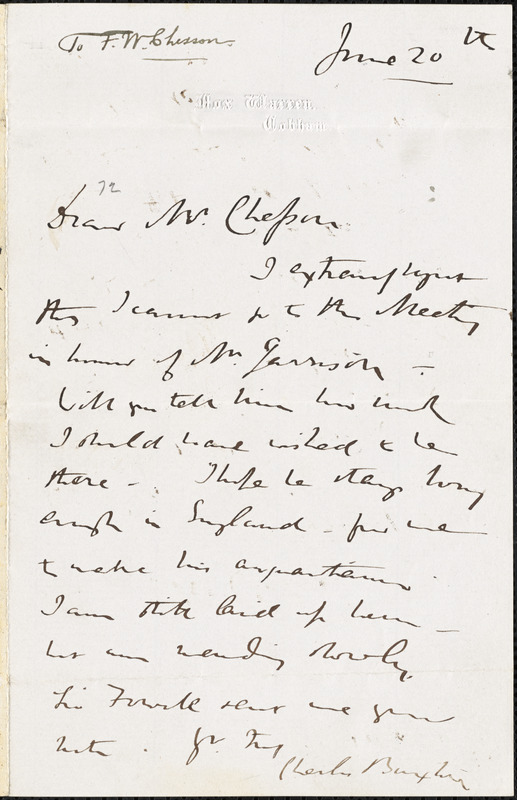 To F. W. Chesson.
June 20th
Fox Warren.
Cobham.
72
Dear Mr. Chesson
I extremely regret
that I cannot go to the Meeting
in honour of Mr. Garrison —
Will you tell him how much
I should have wished to be
there — I hope he stays long
enough in England — for me
to make his acquaintance
I am still laid up here —
but am mending slowly,
Sir Fowell sent me your
note. Yr. Try
Charles Buxton